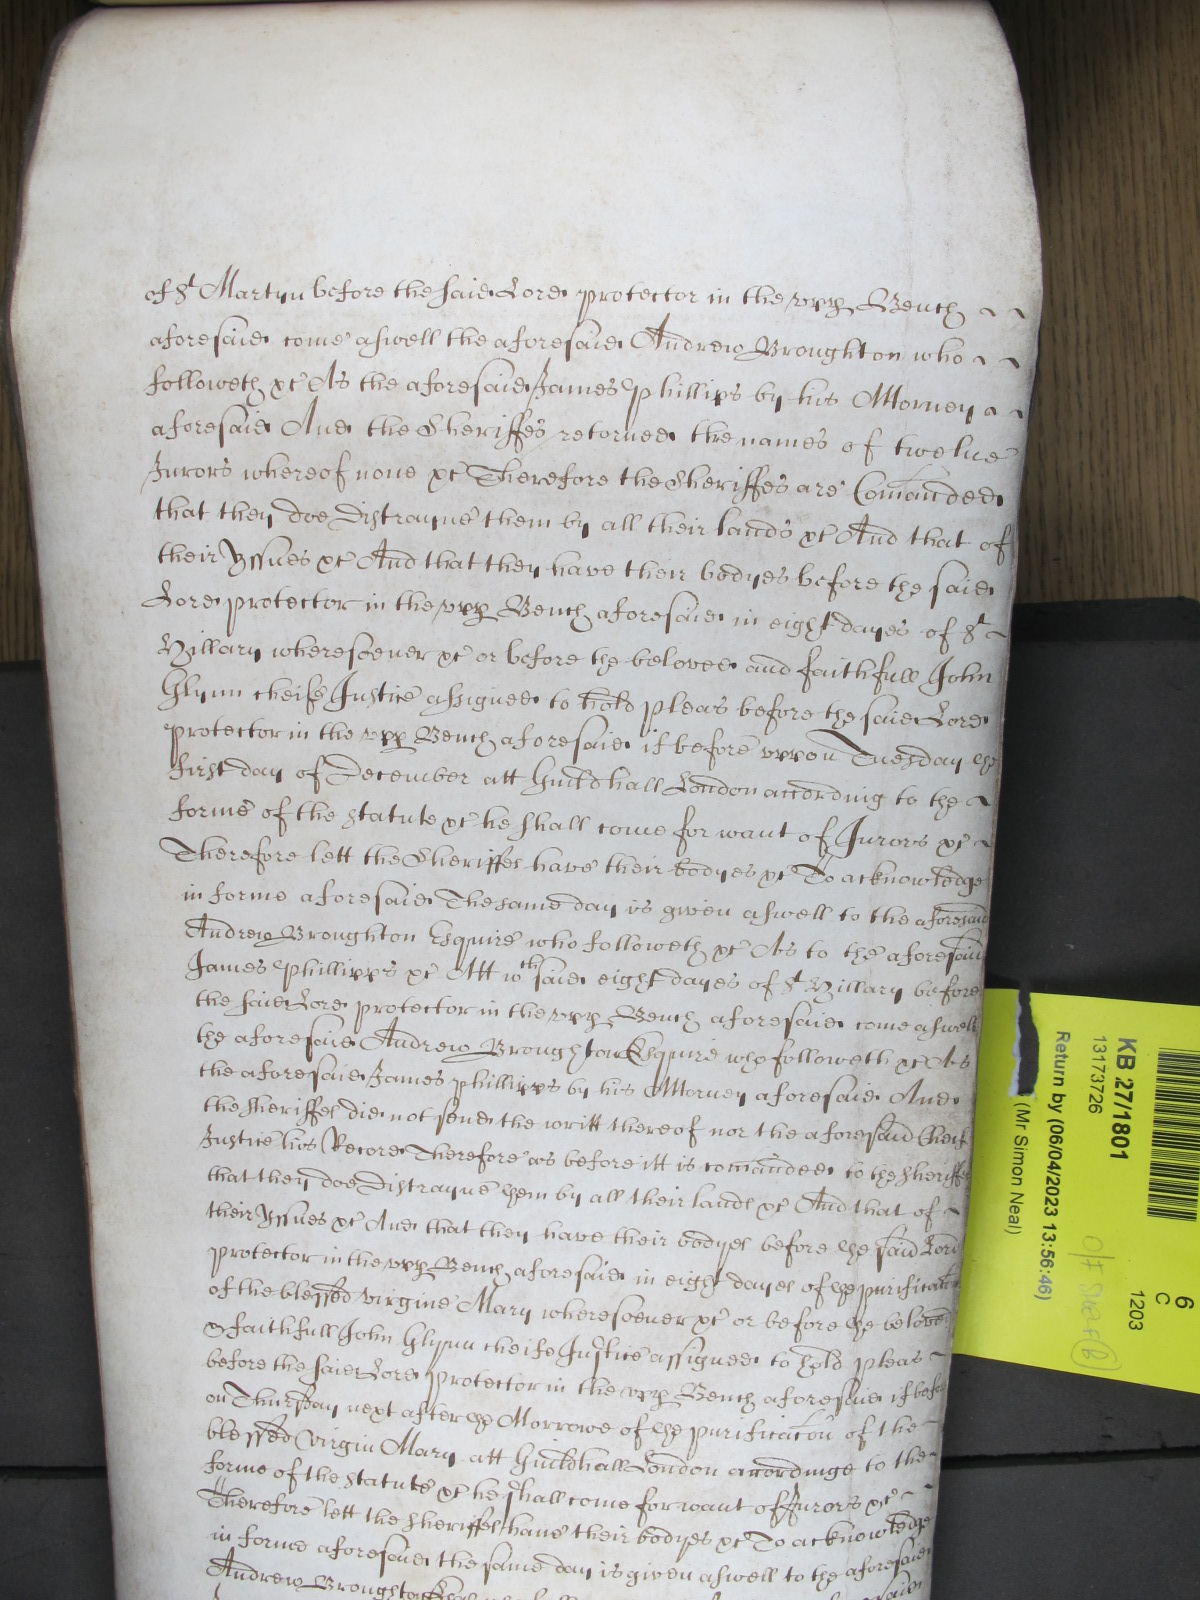 of St Martyn before the said Lord protector in the vpp Bench
aforesaid come aswell the aforesaid Andrew Broughton who
followeth &c As the aforesaid James Phillipps by his Attorney
aforesaid And the Sheriffes retorned the names of twelue
Jurors whereof none &c Therefore the Sheriffes are Comanded
that they doe Distrayne them by all their lands &c And that of
their Yssues &c And that they have their bodyes before the said
Lord protector in the vpp Bench aforesaid in eight dayes of St
Hillary wheresoever &c or before the beloved and faithfull John
Glynn cheife Justice assigned to hold pleas before the said Lord
protector in the vpp Bench aforesaid if before vppon Tuesday the
first day of December att Guildhall London according to the
forme of the statute &c he shall come for want of Jurors &c
Therefore lett the Sheriffes have their bodyes &c To acknowledge
in forme aforesaid The same day is given aswell to the aforesaid
Andrew Broughton Esquire who followeth &c As to the aforesaid
James Phillipps &c Att wch said eight dayes of St Hillary before
the said Lord protector in the vpp Bench aforesaid come aswell
the aforesaid Andrew Broughton Esquire who followeth &c As
the aforesaid James phillipps by his Attorney aforesaid And
the Sheriffes did not send the writt thereof nor the aforesaid Cheif
Justice his Record Therefore as before itt is comanded to the Sheriffes
that they doe Distrayne them by all their lands &c And that of
their Yssues &c And that they have their bodyes before the said Lord
protector in the vpp Bench aforesaid in eight dayes of the purificaton
of the blessed virgine Mary wheresoever &c or before the beloved
& faithfull John Glynn cheife Justice assigned to hold pleas
before the said Lord protector in the vpp Bench aforesaid if before
on Thursday next after the Morrowe of the purificaton of the
blessed virgin Mary att Guildhall London accordinge to the
forme of the statute &c he shall come for want of Jurors &c
Therefore lett the Sheriffes have their bodyes &c To acknowledge
in forme aforesaid the same day is given aswell to the aforesaid
Andrew Broughton
KB 27/1801
13173726
Return by (06/04/2023 13:56:46)
(Mr Simon Neal)
6
C
1203